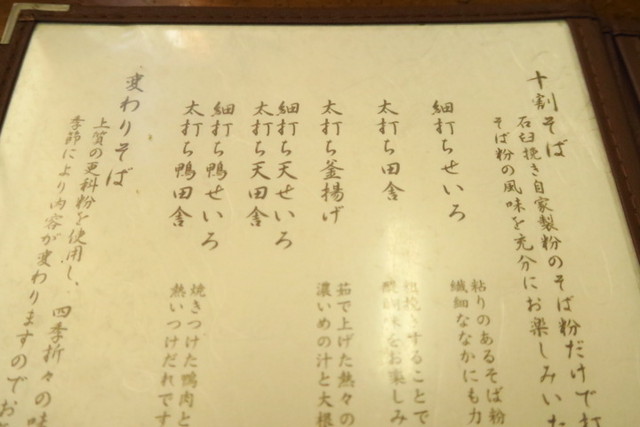 十割そば
石臼挽き自家製粉のそば粉だけで打
そば粉の風味を充分にお楽しみいた
細打ちせいろ
粘りのあるそば粉
繊細ななかにも力
太打ち田舎
粗挽きすることで
をお楽しみ
太打ち釜揚げ
茹で上げた熱々の
濃いめの汁と大根
細打ち天せいろ
太打ち天田舎
細打ち鴨せいろ
太打ち鴨田舎
焼きつけた鴨肉と
熱いつけだれです
変わりそば
上質の更科粉を使用し、四季折々の味
季節により内容が変わりますのでお